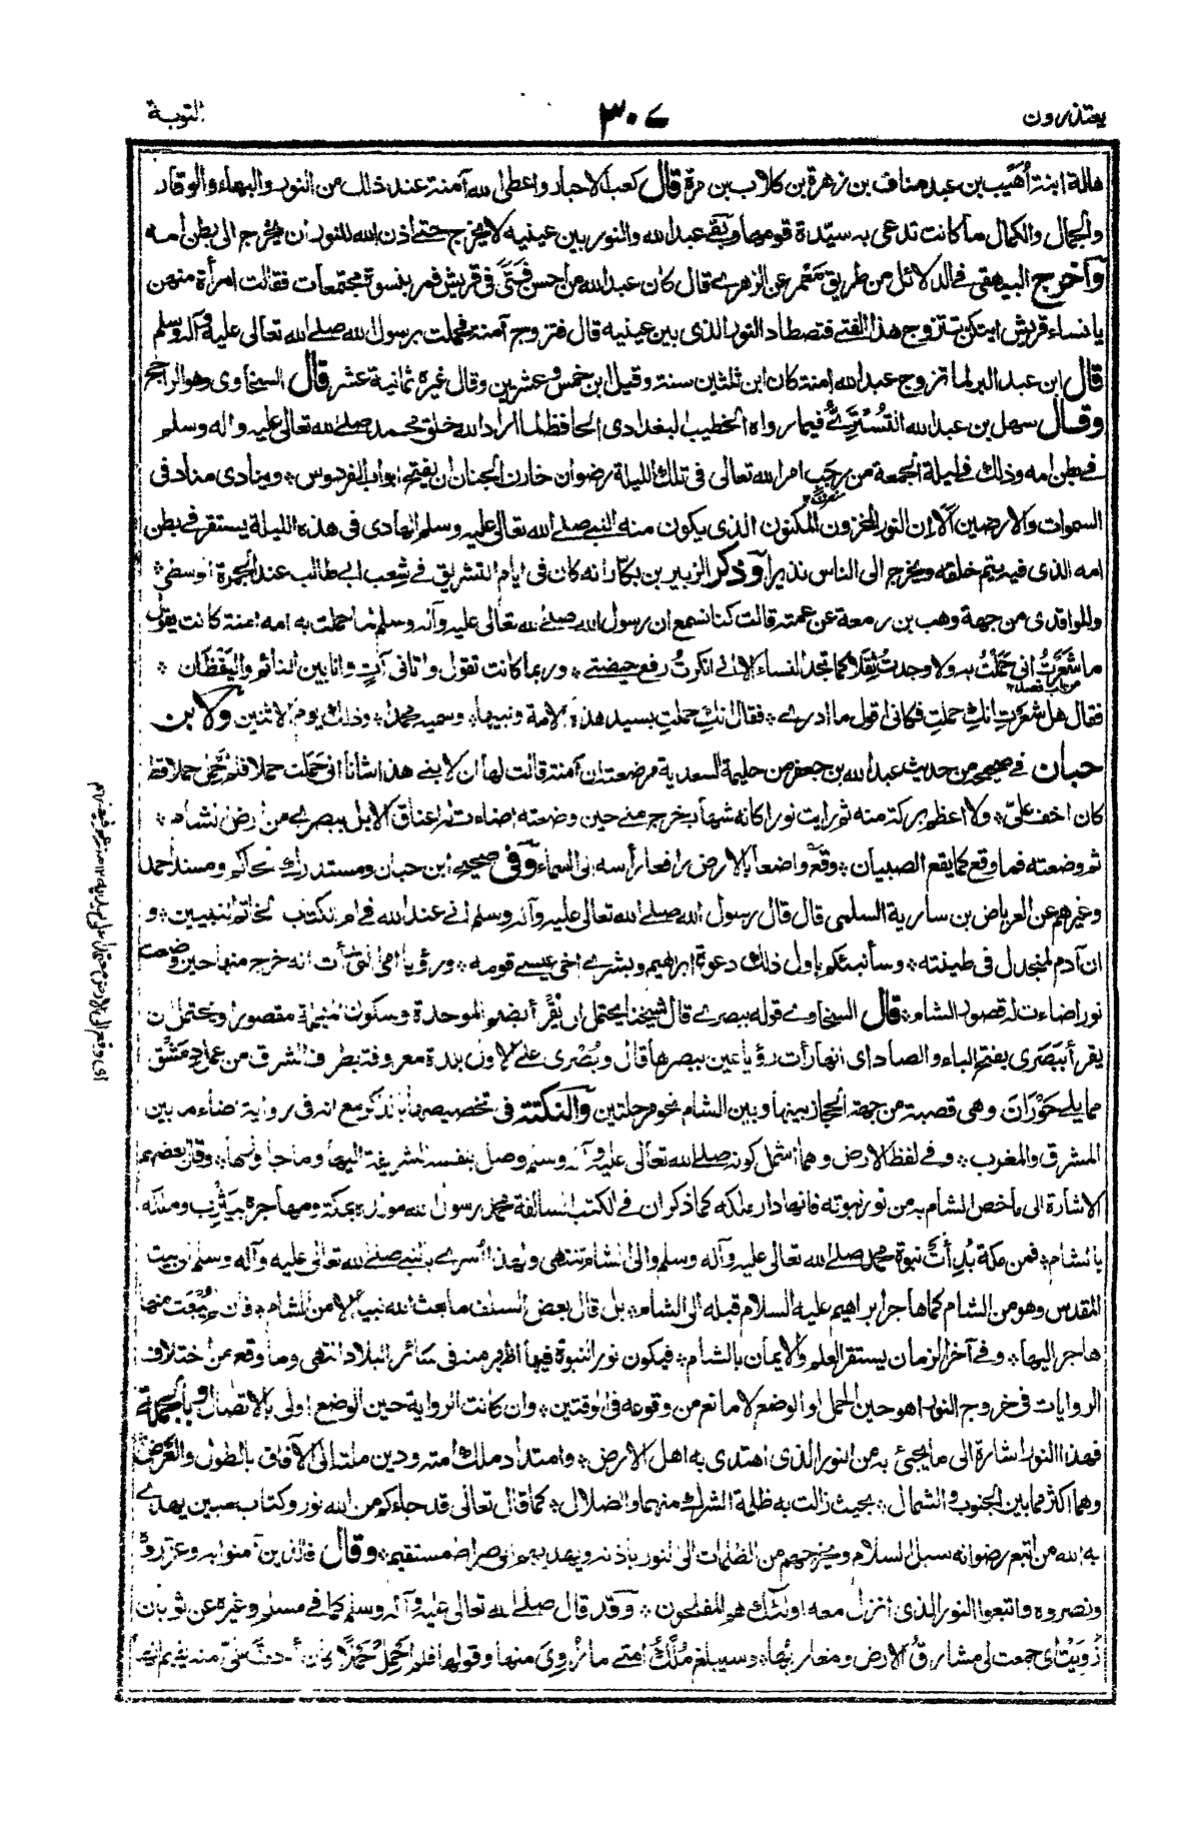 يعتذرون
٣٠٧
التوبة
هالة ابنة أُهَيْب بن عبد مناف بن زهرة بن كلاب بن مرة قال كعب الاحبار واعطى الله آمنة عند ذلك من النور والبهاء والوقار
والجمال والكمال ما كانت تدعى به سيّدة قومها وبَقِيَ عبد الله والنور بين عينيه لا يخرج حتى اذن الله للنور ان يخرج الى بطن امه
وآخرج البيهقى فى الدلائل من طريق مَعْمر عن الزهرى قال كان عبد الله من احسن فَتًى فى قريش فمر بنسوة مجتمعات فقالت امرأة منهن
يا نساء قريش ايتكن تتزوج هذا الفتى فتصطاد النور الذى بين عينيه قال فتزوج آمنة فحملت برسول الله صلى الله تعالى عليه وآله وسلم
قال ابن عبد البر لما تزوج عبد الله امنة كان ابن ثلثين سنة وقيل ابن خمس وعشرين وقال غيره ثمانية عشر قال السخاوى وهو الراجح
وقال سهل بن عبد الله التُّسْتَرِىّ فيما رواه الخطيب البغدادى الحافظ لما اراد الله خلق محمد صلى الله تعالى عليه واله وسلم
فى بطن امه وذلك فى ليلة الجمعة من رجب امر الله تعالى فى تلك الليلة رضوان خازن الجنان ان يفتح ابواب الفردوس ۞ وينادى مناد فى
السموات والارضين آلا ان النور المخزون المكنون الذى يكون منه النبى صلى الله تعالى عليه وسلم الهادى فى هذه الليلة يستقر فى بطن
امه الذى فيه يتم خلقه ويخرج الى الناس نذيرا وذكر الزبير بن بكارانه كان فى ايام التشريق فى شِعب ابى طالب عند الجمرة الوسطى ۞
وللواقدى من جهة وهب بن زمعة عن عمته قالت كنا نسمع ان رسول الله صلى الله تعالى عليه وآله وسلم لما حملت به امه امنة كانت يقول
ما شَعَرْتُ انى حَمَلْتُ به ولا وجدت ثِقَلا كما تجد النساء الا انى انكرتُ رفع حيضتى ۞ وربما كانت تقول واتانى آتٍ وانا بين النائم واليَقْظَان ۞
فقال هل شعرتِ انكِ حملتِ فكانى اقول ما ادرى ۞ فقال انكِ حملتِ بسيد هذه الامة ونبيها ۞ وسميه محمدا ۞ وذلك يوم الاثنين ولابن
حبان فى صحيحه من حديث عبد الله بن جعفر من حليمة السعدية مرضعته ان آمنة قالت لها ان لابنى هذا شانا انى حَمَلت حملا فلم حملا قط
كان اخف علىّ ۞ ولا اعظم بركة منه ثم رايت نورا كانه شهاب خرج منى حين وضعته اضاءت له اعناق الابل ببصرى من ارض الشام ۞
ثم وضعته فما وقع كما يقع الصبيان ۞ وقع واضعا بالارض رافعا رأسه الى السماء وفى صحيح ابن حبان ومستدرك الحاكم ومسند احمد
وغيرهم عن العرباض بن سارية السلمى قال قال رسول الله صلى الله تعالى عليه وآله وسلم انى عند الله فى ام الكتب لخاتم النبيين ۞ و
ان آدم لمنجدل فى طينته ۞ وسأنبئكم باول ذلك دعوة ابراهيم وبشرى اخى عيسى قومه ۞ ورؤيا امى التى رأت انه خرج منها حين وضعته
نور اضاءت له قصور الشام ۞ قال السخاوى قوله ببصرى قال شيخنا يحتمل ان يُقْرأ بضم الموحدة وسكون المهملة مقصورا ويحتمل ان
يقرأ ببَصَرى بفتح الباء والصاد اى انها رأت رؤيا عين ببصرها قال وبُصْرى على الاول بلدة معروفة بطرف الشرق من عمل دِمَشْق
مما يلى حَوْرَان وهى قصبة من جهة الحجاز بينها وبين الشام نحو مرحلتين والنكتة فى تخصيصها بالذكر مع انه فى رواية اضاء ما بين
المشرق والمغرب ۞ وفى لفظ الارض وهما اشمل كونه صلى الله تعالى عليه وآله وسلم وصل بنفسه الشريفة اليها وما جاوزها ۞ وقال بعضهم
الاشارة الى ما خص الشام به من نور نبوته فانها دار ملكه كما ذكر ان فى الكتب السالفة محمد رسول الله مولده بمكة ومهاجره بيَثْرِب وملكه
بالشام ۞ فمن مكة بُدِأَتْ نبوة محمد صلى الله تعالى عليه وآله وسلم والى الشام تنتهى ولهذا اُسرى بالنبى صلى الله تعالى عليه وآله وسلم الى بيت
المقدس وهو من الشام كما هاجر ابراهيم عليه السلام قبله الى الشام ۞ بل قال بعض السلف ما بعث الله نبيا الا من الشام ۞ فان لم يُبْعَث منها
هاجر اليها ۞ وفى آخر الزمان يستقر العلم والايمان بالشام ۞ فيكون نور النبوة فيها اظهر منه فى سائر البلاد انتهى وما وقع من اختلاف
الروايات فى خروج النور اهو حين الحمل او الوضع لا مانع من وقوعه فى الوقتين ۞ وان كانت الرواية حين الوضع اولى بالاتصال وبالجملة
فهذا النور اشارة الى ما يجئ به من النور الذى اهتدى به اهل الارض ۞ وامتداد ملك امته ودين ملته الى الآفاق بالطول والعَرْض
وهما اكثر مما بين الجنوب والشمال ۞ بحيث زالت به ظلمة الشرك منها والضلال ۞ كما قال تعالى قد جاءكم من الله نور وكتاب مبين يهدى
به الله من اتبع رضوانه سبل السلام ويخرجهم من الظلمات الى النور باذنه ويهديهم الى صراط مستقيم ۞ وقال فالذين آمنوا به وعزروه
ونصروه واتبعوا النور الذى انزل معه اولئك هم المفلحون ۞ وقد قال صلى الله تعالى عليه وآله وسلم كما فى مسلم وغيره عن ثوبان
زُوِيَتْ اى جمعت لى مشارقُ الارض ومغاربُها ۞ وسيبلغ مُلْكُ امتى ما زُوِىَ منها وقولها فلم اَحْمِلْ حَمْلًا كان